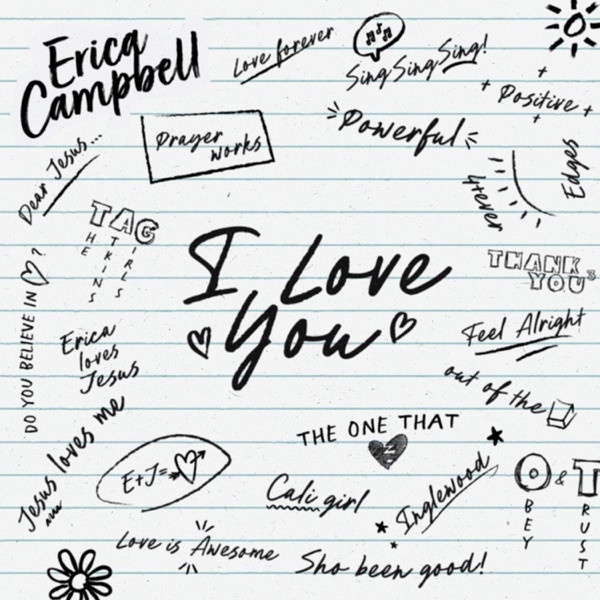 Erica
Campbell
Love forever
Sing Sing Sing!
+ Positive +
Prayer
works
Powerful
Dear Jesus...
4ever
Edges
TAG
HE
TKINS
IRLS
I Love
You
THANK
YOU³
DO YOU BELIEVE IN ♡?
Erica
loves
Jesus
Feel Alright
out of the
Jesus loves me
E+J=
THE ONE THAT
Cali girl
Inglewood
O & T
BEY
RUST
Love is Awesome
Sho been good!